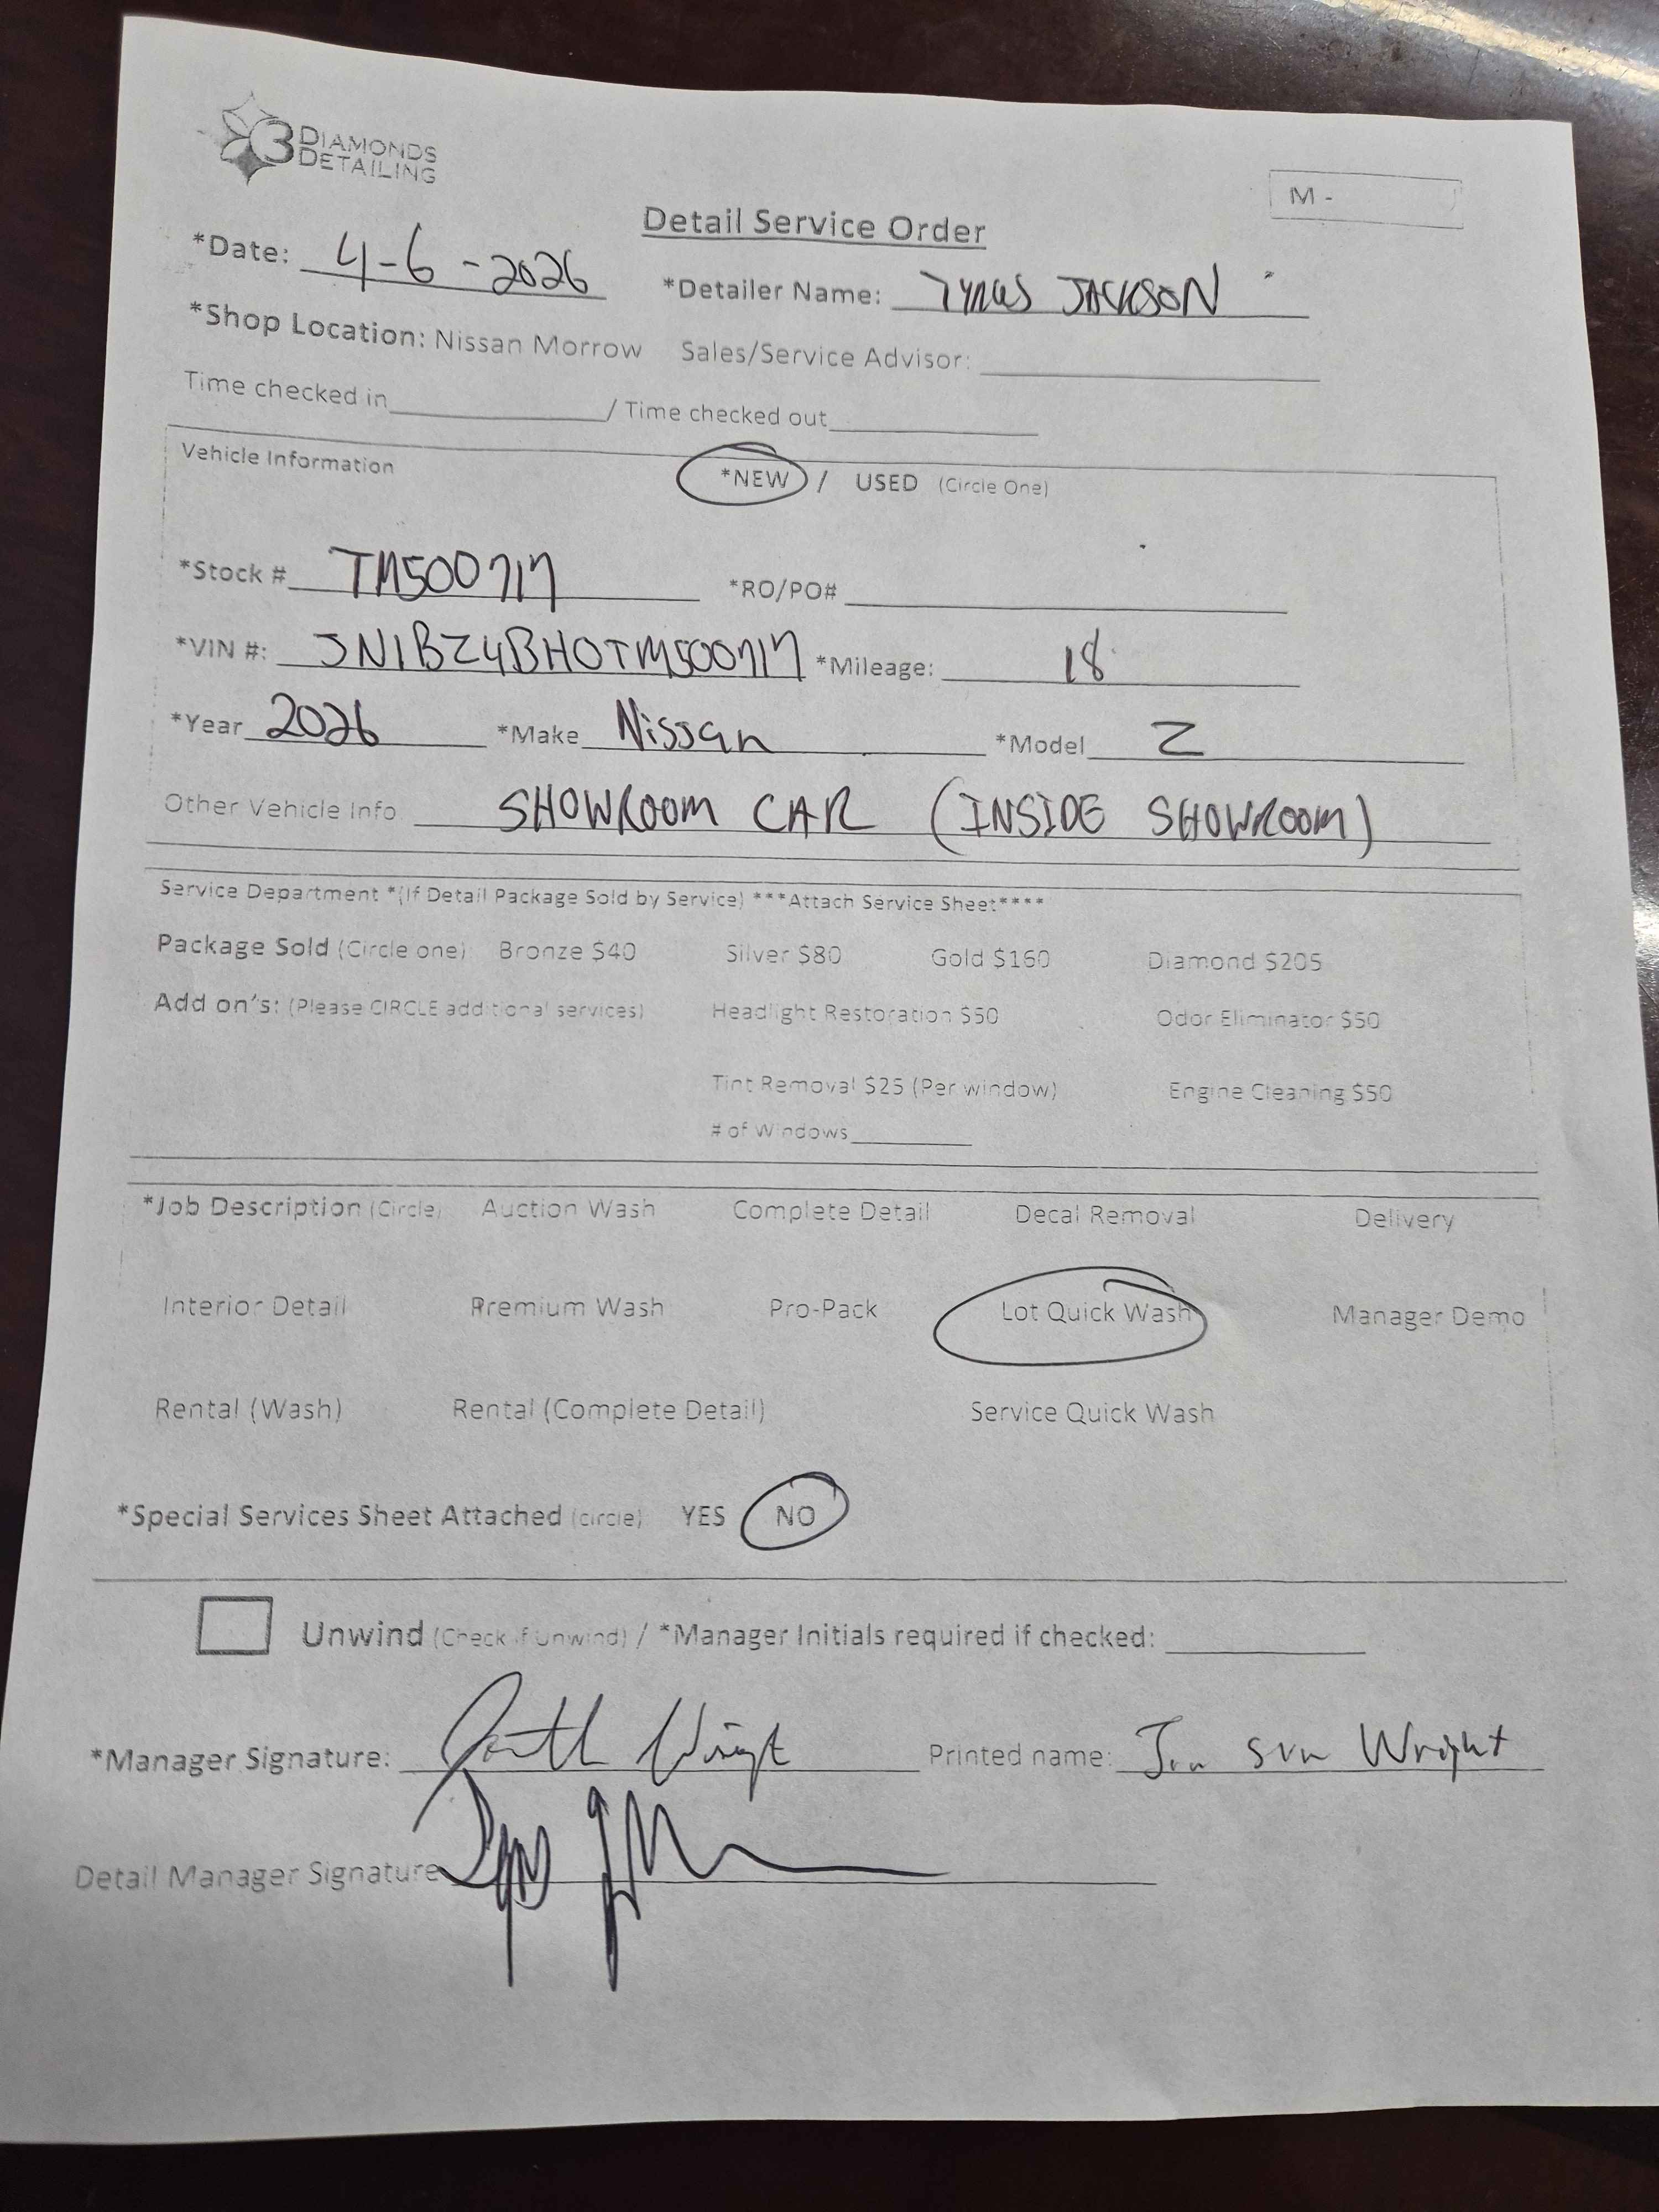 3 DIAMONDS DETAILING
M -
Detail Service Order
*Date: 4-6-2026 *Detailer Name: TYRUS JACKSON
*Shop Location: Nissan Morrow Sales/Service Advisor:
Time checked in / Time checked out
Vehicle Information *NEW / USED (Circle One)
*Stock # TM500717 *RO/PO#
*VIN #: JN1BZ4BH0TM500717 *Mileage: 18
*Year 2026 *Make Nissan *Model Z
Other Vehicle Info SHOWROOM CAR (INSIDE SHOWROOM)
Service Department *(If Detail Package Sold by Service) ***Attach Service Sheet****
Package Sold (Circle one) Bronze $40 Silver $80 Gold $160 Diamond $205
Add on's: (Please CIRCLE additional services) Headlight Restoration $50 Odor Eliminator $50
Tint Removal $25 (Per window) Engine Cleaning $50
# of Windows
*Job Description (Circle) Auction Wash Complete Detail Decal Removal Delivery
Interior Detail Premium Wash Pro-Pack Lot Quick Wash Manager Demo
Rental (Wash) Rental (Complete Detail) Service Quick Wash
*Special Services Sheet Attached (circle) YES NO
Unwind (Check if Unwind) / *Manager Initials required if checked:
*Manager Signature: Printed name: Wright
Detail Manager Signature